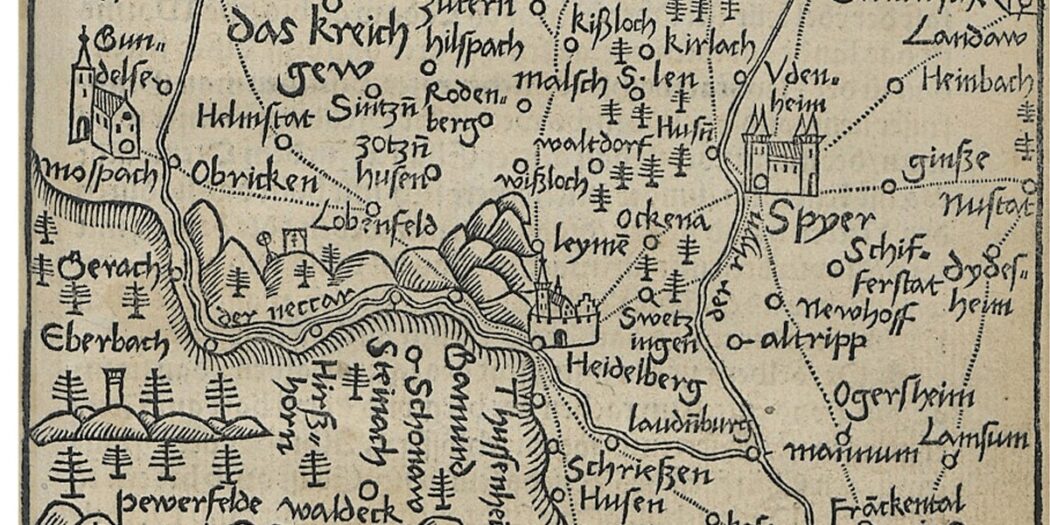 das kreich
gew
zutern
hilspach
kißloch
kirlach
Landaw
Gun=
delse
malsch
S. len
Vden=
heim
Heinbach
Helmstat
Sintzn̄
Roden=
berg
zotzn̄
husen
waltdorf
Husn̄
ginsze
mospach
Obricken
wißloch
Nustat
Lobenfeld
Ockena
Spyer
leymē
Schif=
ferstat
dydes=
heim
Gerach
der neccar
Newhoff
Swetz
ingen
altripp
Eberbach
Heidelberg
Hirß=
horn
Steinach
Schonaw
Ogersheim
laudn̄burg
mannum
Lamsum
Schrießen
Husen
pewerfelde
waldeck
Frāckental